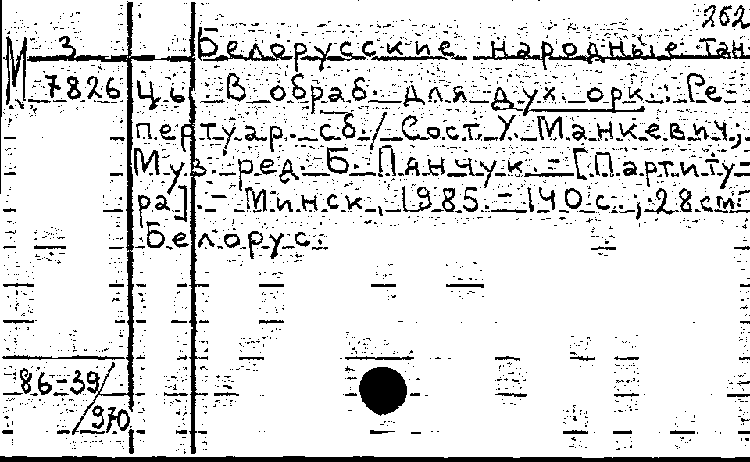 262
М 3 Белорусские народные тан-
7826 цы. В обраб. для дух. орк.: Ре-
пертуар. сб./ Сост. У. Манкевич;
Муз. ред. Б. Панчук. - [Партиту-
ра]. - Минск, 1985. - 140 с.; 28 см. -
Белорус.
86-39/
970